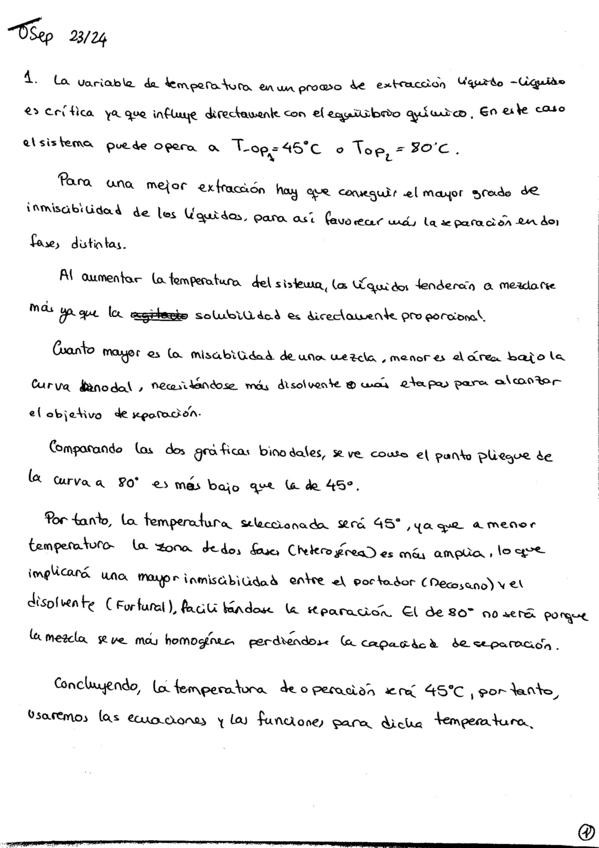 OSep 23/24
1. La variable de temperatura en un proceso de extracción líquido-líquido
es crítica ya que influye directamente con el equilibrio químico. En este caso
el sistema puede opera a Top₁ = 45°C o Top₂ = 80°C.
Para una mejor extracción hay que conseguir el mayor grado de
inmiscibilidad de los líquidos, para así favorecer más la separación en dos
fases distintas.
Al aumentar la temperatura del sistema, los líquidos tenderán a mezclarse
más ya que la solubilidad es directamente proporcional.
Cuanto mayor es la miscibilidad de una mezcla, menor es el área bajo la
curva binodal, necesitándose más disolvente o más etapas para alcanzar
el objetivo de separación.
Comparando las dos gráficas binodales, se ve como el punto pliegue de
la curva a 80° es más bajo que la de 45°.
Por tanto, la temperatura seleccionada será 45°, ya que a menor
temperatura la zona de dos fases (heterogérea) es más amplia, lo que
implicará una mayor inmiscibilidad entre el portador (Docosano) y el
disolvente (Furfural), facilitándose la separación. El de 80° no será porque
la mezcla se ve más homogénea perdiéndose la capacidad de separación.
Concluyendo, la temperatura de operación será 45°C, por tanto,
usaremos las ecuaciones y las funciones para dicha temperatura.
1